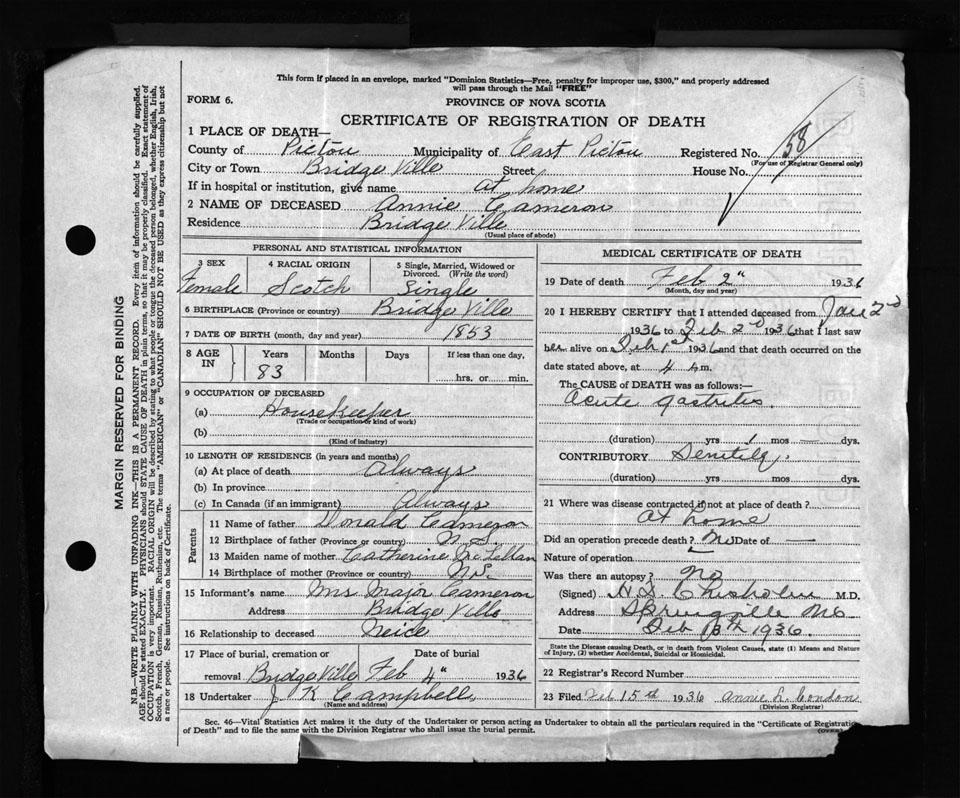 This form if placed in an envelope, marked "Dominion Statistics—Free, penalty for improper use, $300," and properly addressed
will pass through the Mail "FREE"
FORM 6.
PROVINCE OF NOVA SCOTIA
CERTIFICATE OF REGISTRATION OF DEATH
58
1 PLACE OF DEATH—
County of Pictou Municipality of East Pictou Registered No.
(For use of Registrar General only)
City or Town Bridge Ville Street House No.
If in hospital or institution, give name At home
2 NAME OF DECEASED Annie Cameron
Residence Bridge Ville
(Usual place of abode)
PERSONAL AND STATISTICAL INFORMATION
3 SEX 4 RACIAL ORIGIN 5 Single, Married, Widowed or
Divorced. (Write the word)
Female Scotch Single
6 BIRTHPLACE (Province or country) Bridge Ville
7 DATE OF BIRTH (month, day and year) 1853
8 AGE IN Years Months Days If less than one day,
83 hrs. or min.
9 OCCUPATION OF DECEASED
(a) Housekeeper
(Trade or occupation or kind of work)
(b)
(Kind of industry)
10 LENGTH OF RESIDENCE (in years and months)
(a) At place of death Always
(b) In province
(c) In Canada (if an immigrant) Always
Parents
11 Name of father Donald Cameron
12 Birthplace of father (Province or country) N.S.
13 Maiden name of mother Catherine McLellan
14 Birthplace of mother (Province or country) N.S.
15 Informant's name Mrs Major Cameron
Address Bridge Ville
16 Relationship to deceased Neice
17 Place of burial, cremation or Date of burial
removal Bridge Ville Feb 4" 1936
18 Undertaker J K Campbell
(Name and address)
MEDICAL CERTIFICATE OF DEATH
19 Date of death Feb 2" 1936
(Month, day and year)
20 I HEREBY CERTIFY that I attended deceased from Jan 2nd
1936 to Feb 2nd 1936 that I last saw
her alive on Feb 1st 1936 and that death occurred on the
date stated above, at 4 m.
The CAUSE OF DEATH was as follows:—
Acute gastritis
(duration) yrs 1 mos — dys.
CONTRIBUTORY Senility
(duration) yrs mos dys.
21 Where was disease contracted if not at place of death?
At home
Did an operation precede death? No Date of —
Nature of operation
Was there an autopsy? No
(Signed) Chisholm M.D.
Address Springville
Date Feb 13th 1936.
State the Disease causing Death, or in death from Violent Causes, state (1) Means and Nature
of Injury, (2) whether Accidental, Suicidal or Homicidal.
22 Registrar's Record Number
23 Filed Feb 15th 1936 Annie L. Condon
(Division Registrar)
Sec. 46—Vital Statistics Act makes it the duty of the Undertaker or person acting as Undertaker to obtain all the particulars required in the "Certificate of Registration
of Death" and to file the same with the Division Registrar who shall issue the burial permit.
(OVER)
MARGIN RESERVED FOR BINDING
N.B.—WRITE PLAINLY WITH UNFADING INK—THIS IS A PERMANENT RECORD. Every item of information should be carefully supplied.
AGE should be stated EXACTLY. PHYSICIANS should STATE CAUSE OF DEATH in plain terms, so that it may be properly classified. Exact statement of
OCCUPATION is very important. RACIAL ORIGIN will be described by stating to what people or tongue the deceased person belonged, whether English, Irish,
Scotch, French, German, Russian, Ruthenian, etc. The terms "AMERICAN" or "CANADIAN" SHOULD NOT BE USED as they express citizenship but not
a race or people. See instructions on back of Certificate.